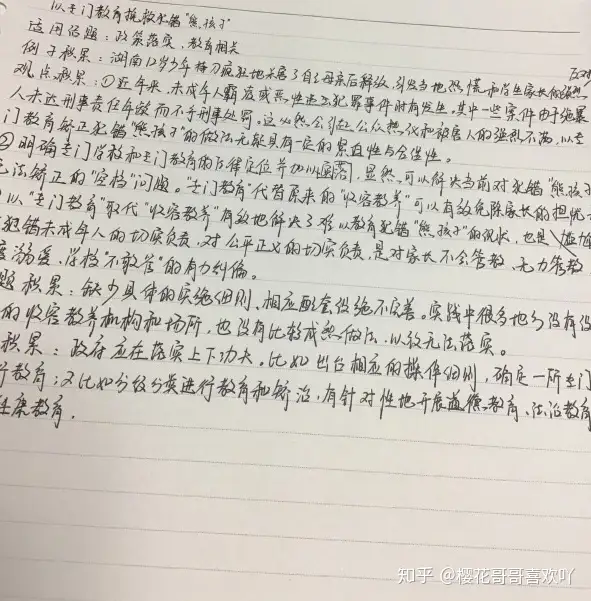 以专门教育挽救犯错“熊孩子”
适用话题：政策落实，教育相关
例子积累：湖南12岁少年持刀疯狂地杀害了自己母亲后释放，引发当地恐慌和学生家长的强烈
观点积累：①近年来，未成年人霸凌或恶性违法犯罪事件时有发生，其中一些案件由于施暴
人未达刑事责任年龄而不予刑事处罚。这必然会引起公众热议和被害人的强烈不满，以专
门教育矫正犯错“熊孩子”的做法无疑具有一定的紧迫性与合理性。
②明确专门学校和专门教育的法律定位并加以，显然，可以解决当前对犯错“熊孩子
无法矫正的“空档”问题。“专门教育”代替原来的“收容教养”可以有效免除家长的担忧
以“专门教育”取代“收容教养”有效地解决了难以教育犯错“熊孩子”的现状，也是
犯错未成年人的切实负责，对公平正义的切实负责，是对家长不会管教、无力管教
度溺爱、学校“不敢管”的有力纠偏。
题积累：缺少具体的实施细则、相应配套设施不完善。实践中很多地方没有设
的收容教养机构和场所，也没有比较成熟做法，以致无法落实。
积累：政府应在落实上下功夫。比如出台相应的操作细则，确定一所专门
行教育；又比如分级分类进行教育和矫治，有针对性地开展道德教育、法治教育
健康教育.
知乎 @樱花哥哥喜欢吖